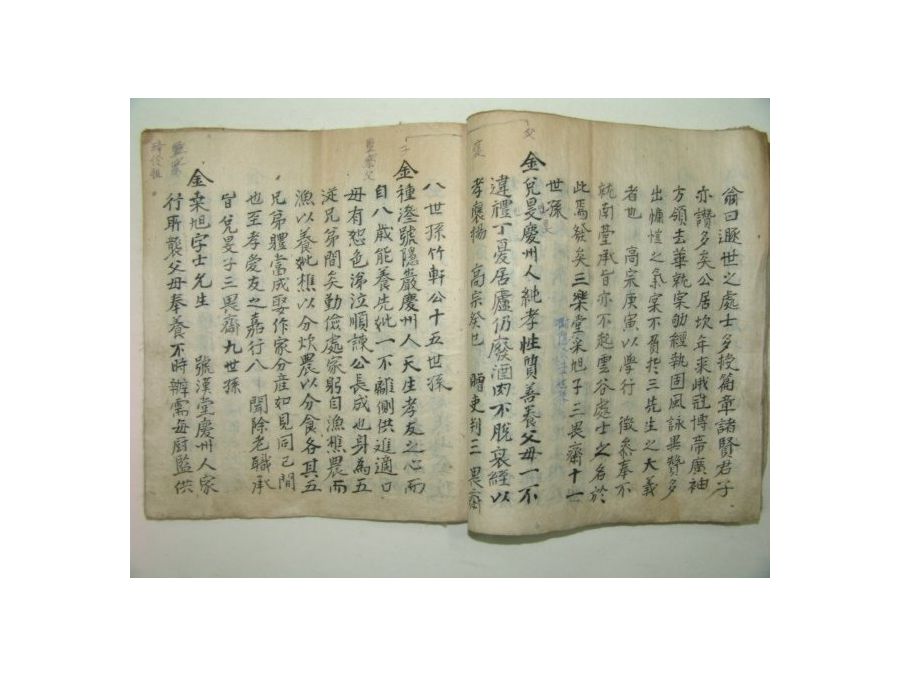 俞曰遯世之處士多授篇章諸賢君子
亦讚多矣公居坎年來峨冠博帶廣袖
方領去華就實劬經執固風詠累贊多
出慷慨之氣實不負於三先生之大義
者也 高宗庚寅以學行 徵參奉不
就南臺承旨亦不起雲谷處士之名於
此焉矣三樂堂采旭子三畏齋十一
世孫
金兌旻慶州人純孝性質善養父母一不
違禮丁憂居廬仍廢酒肉不脫衰絰以
孝褒揚 高宗癸巳 贈吏判三畏齋
八世孫竹軒公十五世孫
金種 號隱巖慶州人天生孝友之心而
自八歲能養先妣一不離側供進適口
母有恕色涕泣順諫公長成也身為五
從兄弟間矣勤儉處家躬自漁樵農而
漁以養妣樵以分炊農以分食各其五
兄弟軆當成娶作家分産如見同己間
也至孝愛友之嘉行八十 聞除老職承
旨兌旻子三畏齋九世孫
金 旭字士允生 號漢堂慶州人家
行所襲父母奉養不時辦需每厨監供